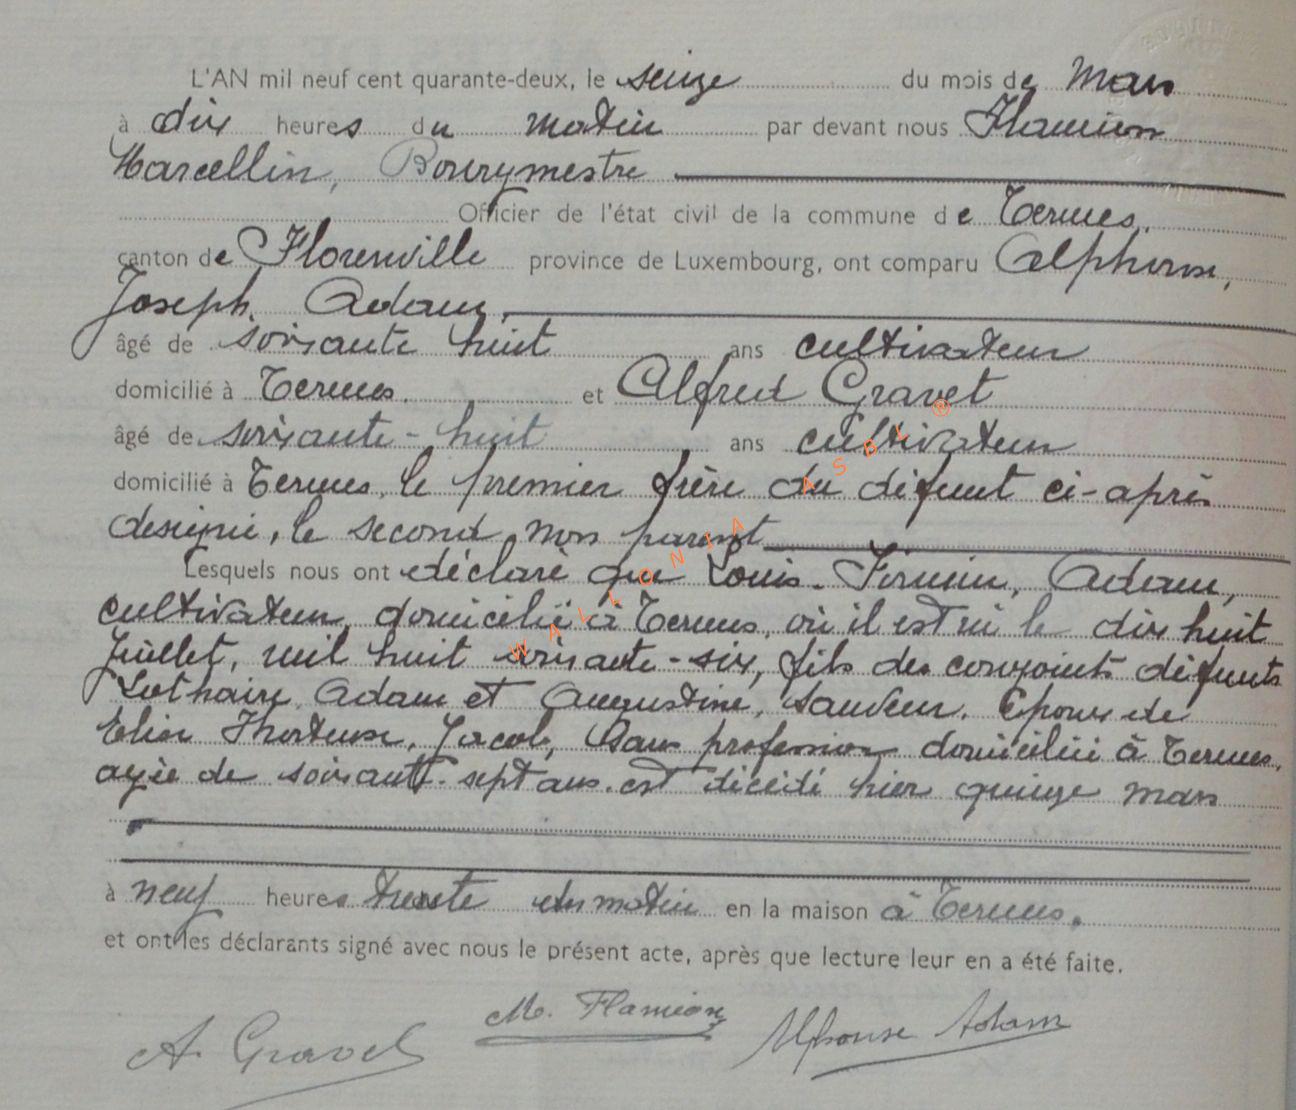 L'AN mil neuf cent quarante-deux, le seize du mois de Mars
à dix heures du matin par devant nous Flamion
Marcellin, Bourgmestre
Officier de l'état civil de la commune de Termes,
canton de Florenville province de Luxembourg, ont comparu Alphonse,
Joseph, Adam,
âgé de soixante huit ans cultivateur
domicilié à Termes, et Alfred Gravet
âgé de soixante-huit ans cultivateur
domicilié à Termes, le premier frère du défunt ci-après
designé, le second non parent
Lesquels nous ont déclaré que Louis-Firmin, Adam,
cultivateur, domicilié à Termes, où il est né le dix huit
Juillet, mil huit soixante-six, fils des conjoints défunts
Lothaire, Adam et Augustine, Sauveur. Epoux de
Elise Hortense, Jacob, Sans profession domiciliée à Termes,
agée de soixante-sept ans. est décédé hier quinze mars
à neuf heures trente du matin en la maison à Termes.
et ont les déclarants signé avec nous le présent acte, après que lecture leur en a été faite.
A. Gravet M. Flamion Alphonse Adam
WALLONIA ASBL ®